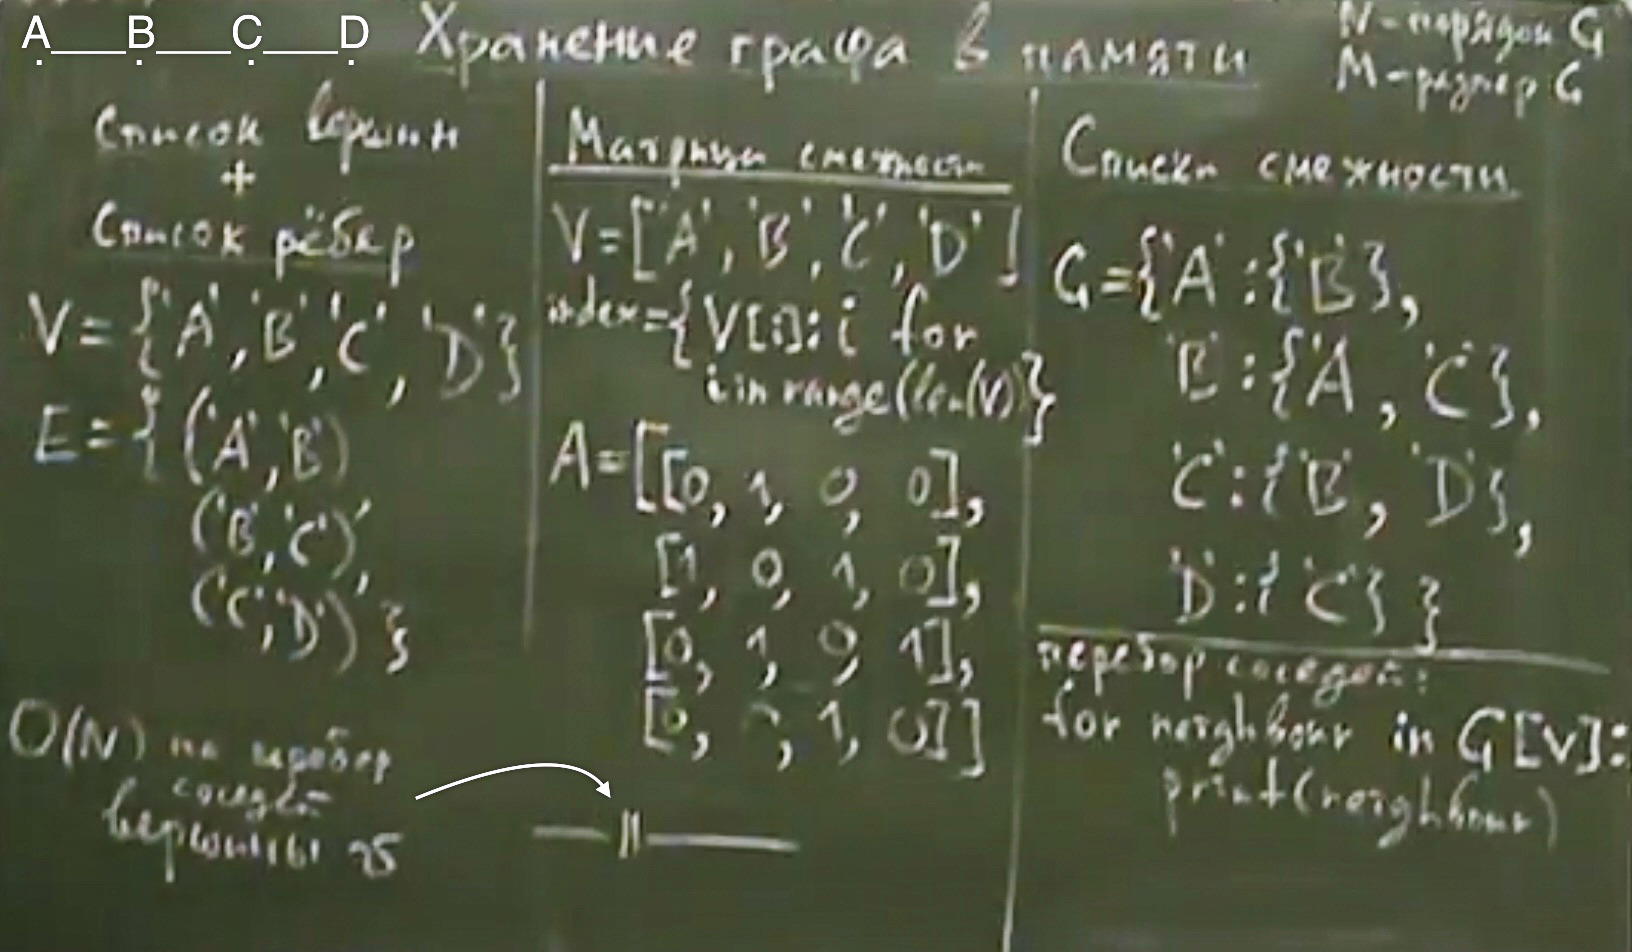 A___B___C___D
Хранение графа в памяти
N-порядок G
M-размер G
Список вершин
+
Список рёбер
V={'A','B','C','D'}
E={('A','B')
('B','C'),
('C','D')}
O(N) на перебор
соседей
вершины
Матрица смежности
V=['A','B','C','D']
index={V[i]:i for
i in range(len(V)}
A=[[0, 1, 0, 0],
[1, 0, 1, 0],
[0, 1, 0, 1],
[0, 0, 1, 0]]
—||—
Списки смежности
G={'A':{'B'},
'B':{'A, 'C'},
'C':{'B', 'D'},
'D':{'C'}}
перебор соседей:
for neighbour in G[V]:
print(neighbour)